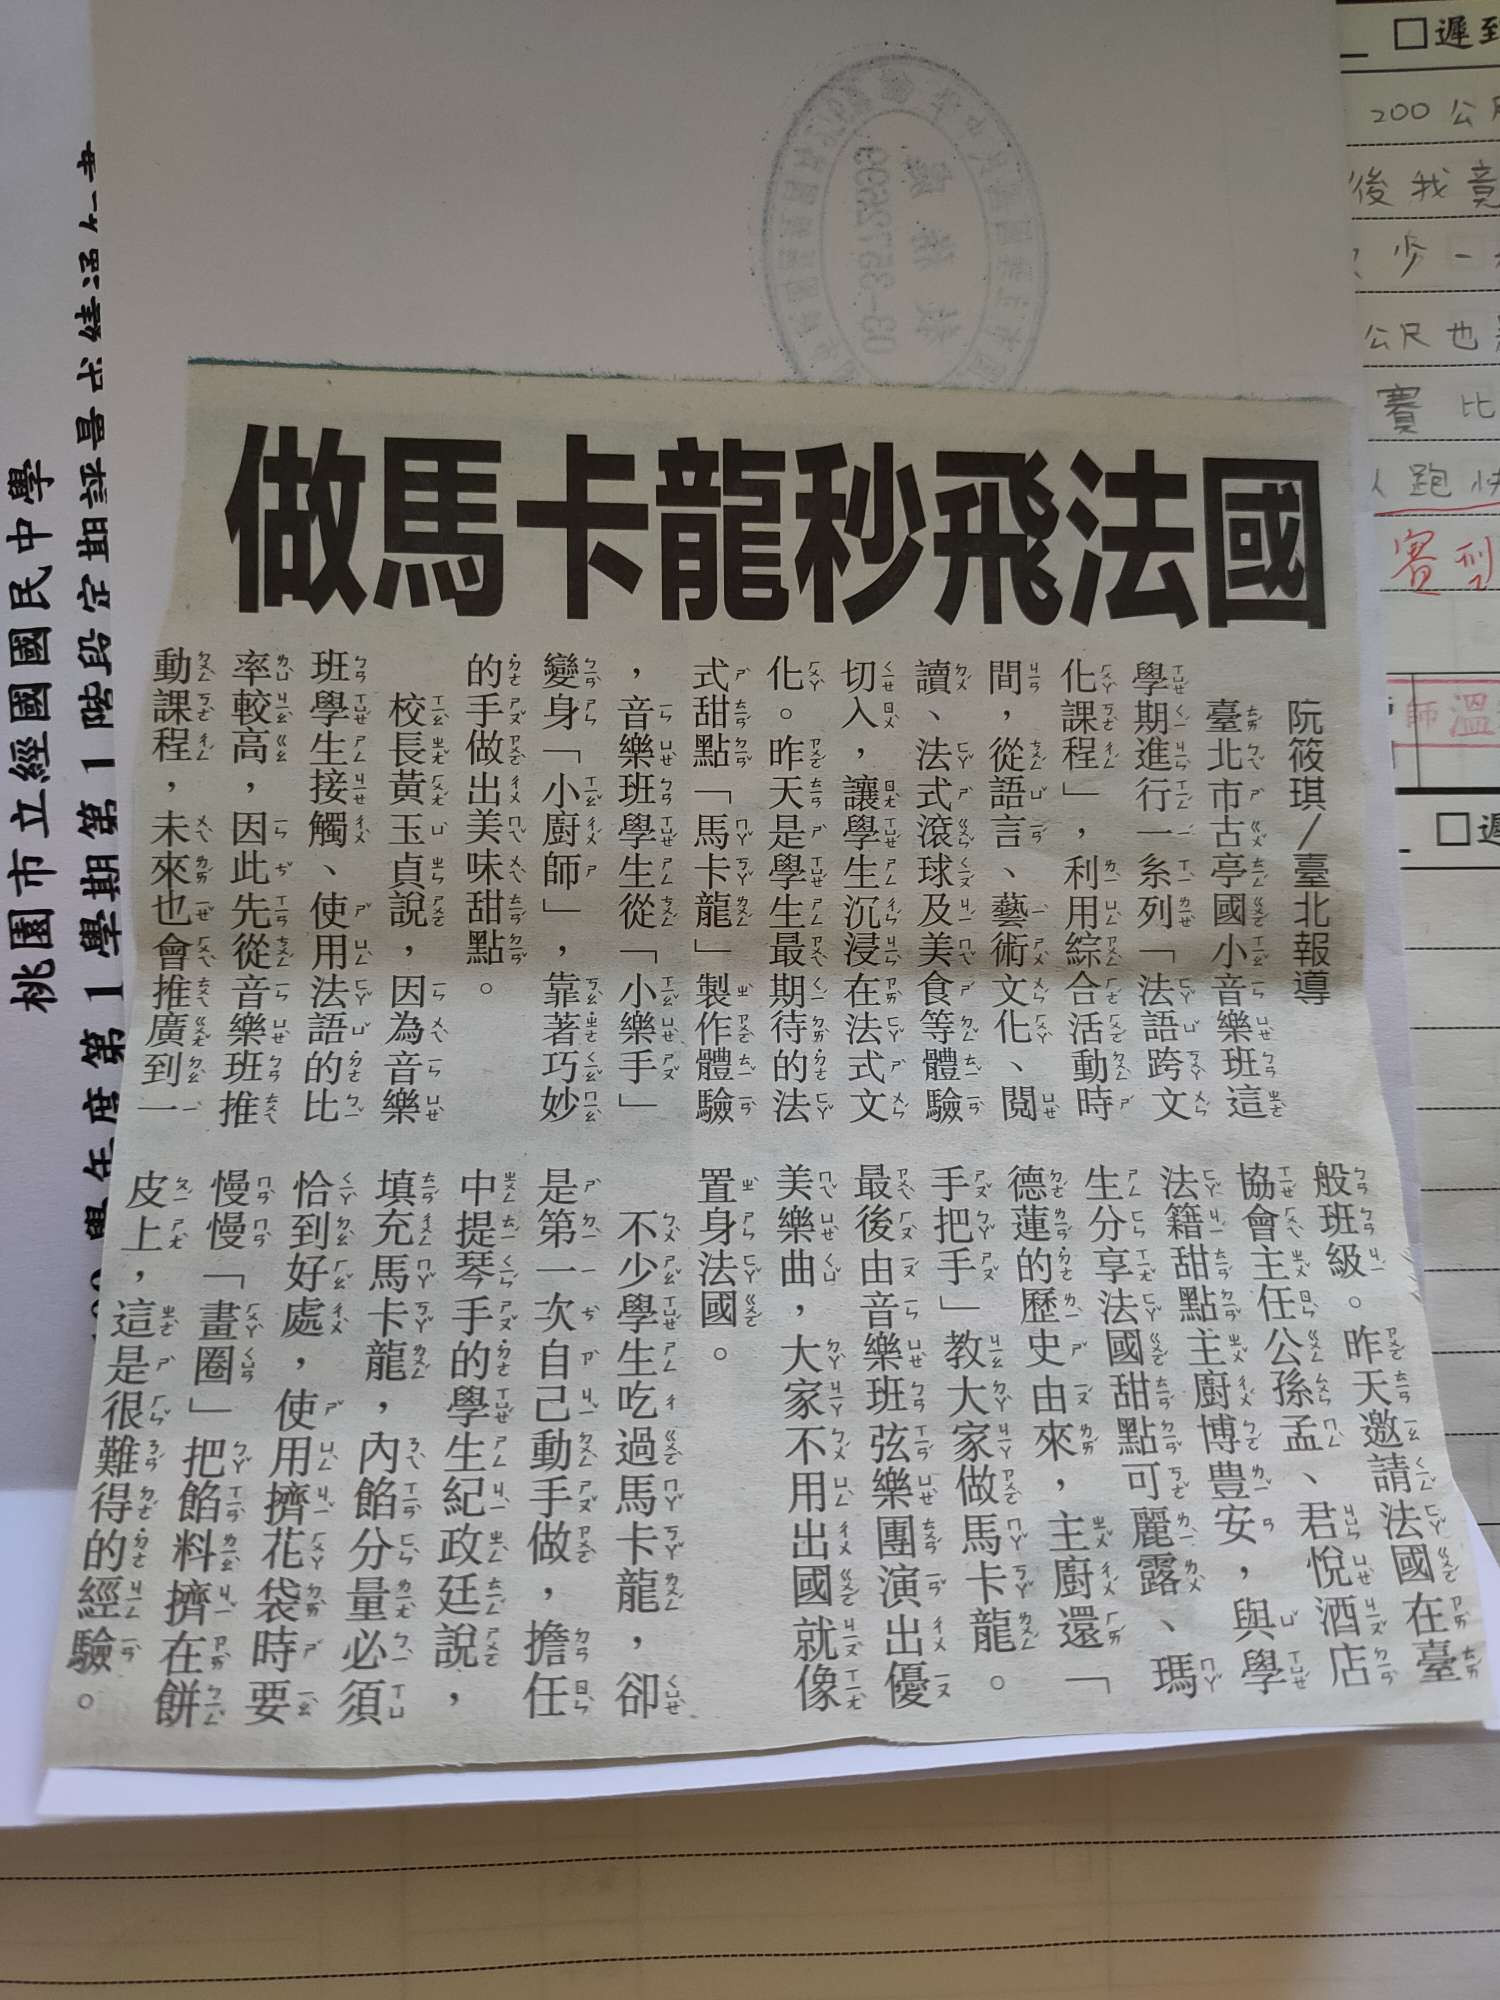 做馬卡龍秒飛法國
阮筱琪／臺北報導
臺北市古亭國小音樂班這
學期進行一系列「法語跨文
化課程」，利用綜合活動時
間，從語言、藝術文化、閱
讀、法式滾球及美食等體驗
切入，讓學生沉浸在法式文
化。昨天是學生最期待的法
式甜點「馬卡龍」製作體驗
，音樂班學生從「小樂手」
變身「小廚師」，靠著巧妙
的手做出美味甜點。
校長黃玉貞說，因為音樂
班學生接觸、使用法語的比
率較高，因此先從音樂班推
動課程，未來也會推廣到一
般班級。昨天邀請法國在臺
協會主任公孫孟、君悅酒店
法籍甜點主廚博豊安，與學
生分享法國甜點可麗露、瑪
德蓮的歷史由來，主廚還「
手把手」教大家做馬卡龍。
最後由音樂班弦樂團演出優
美樂曲，大家不用出國就像
置身法國。
不少學生吃過馬卡龍，卻
是第一次自己動手做，擔任
中提琴手的學生紀政廷說，
填充馬卡龍，內餡分量必須
恰到好處，使用擠花袋時要
慢慢「畫圈」把餡料擠在餅
皮上，這是很難得的經驗。
桃園市立經國國民中學
學年度第1學期第1階段定期評量
遲到
200公
後我竟
少一
公尺也
賽比
跑快
師溫